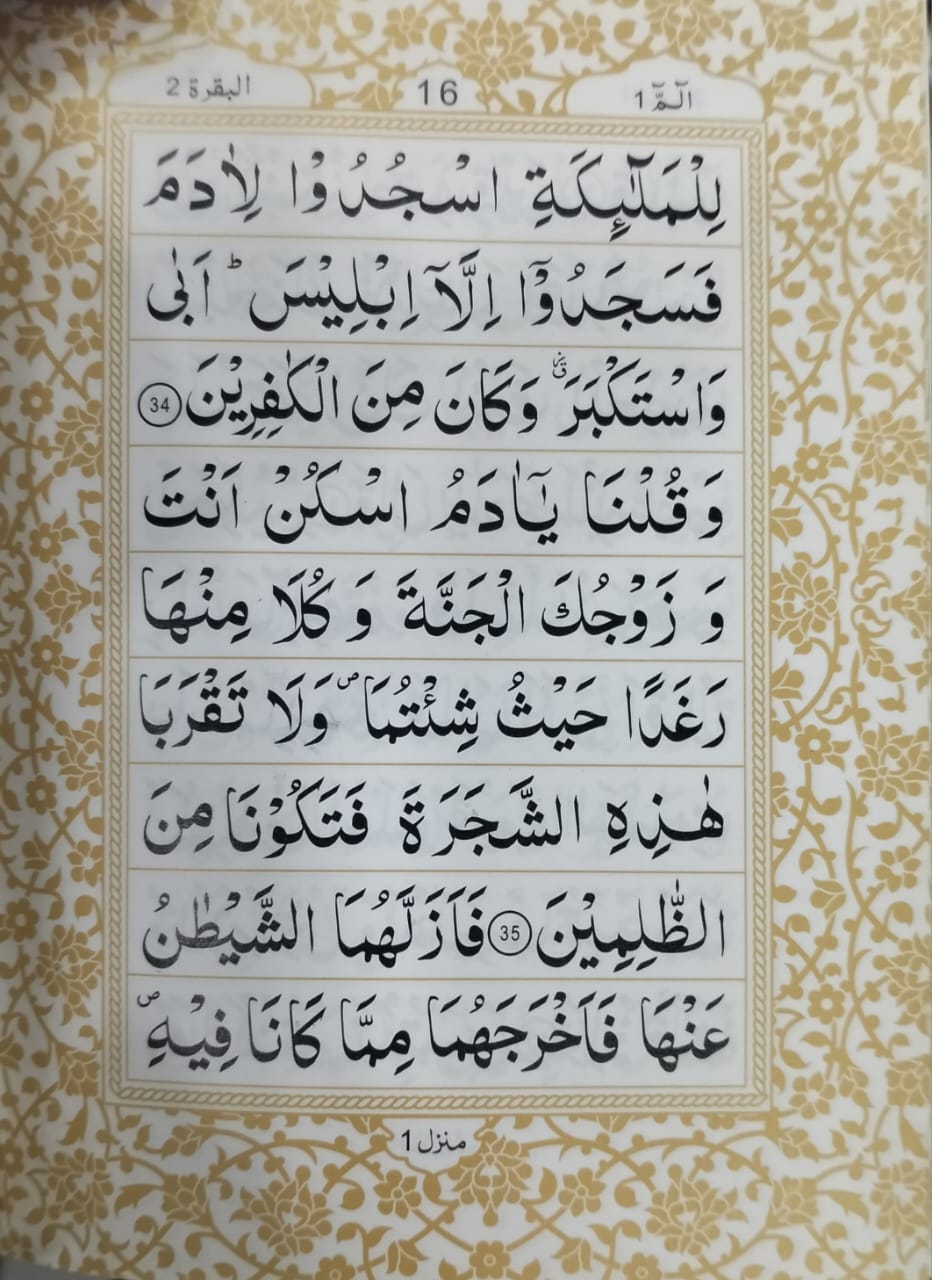 الٓمّٓ 1
16
البقرة 2
لِلْمَلٰٓئِكَةِ اسْجُدُوْا لِاٰدَمَ
فَسَجَدُوْٓا اِلَّآ اِبْلِيْسَ ؕ اَبٰى
وَاسْتَكْبَرَ ۗ وَكَانَ مِنَ الْكٰفِرِيْنَ 34
وَ قُلْنَا يٰٓاٰدَمُ اسْكُنْ اَنْتَ
وَ زَوْجُكَ الْجَنَّةَ وَ كُلَا مِنْهَا
رَغَدًا حَيْثُ شِئْتُمَا ۪ وَلَا تَقْرَبَا
هٰذِهِ الشَّجَرَةَ فَتَكُوْنَا مِنَ
الظّٰلِمِيْنَ 35 فَاَزَلَّهُمَا الشَّيْطٰنُ
عَنْهَا فَاَخْرَجَهُمَا مِمَّا كَانَا فِيْهِ ۪
منزل 1